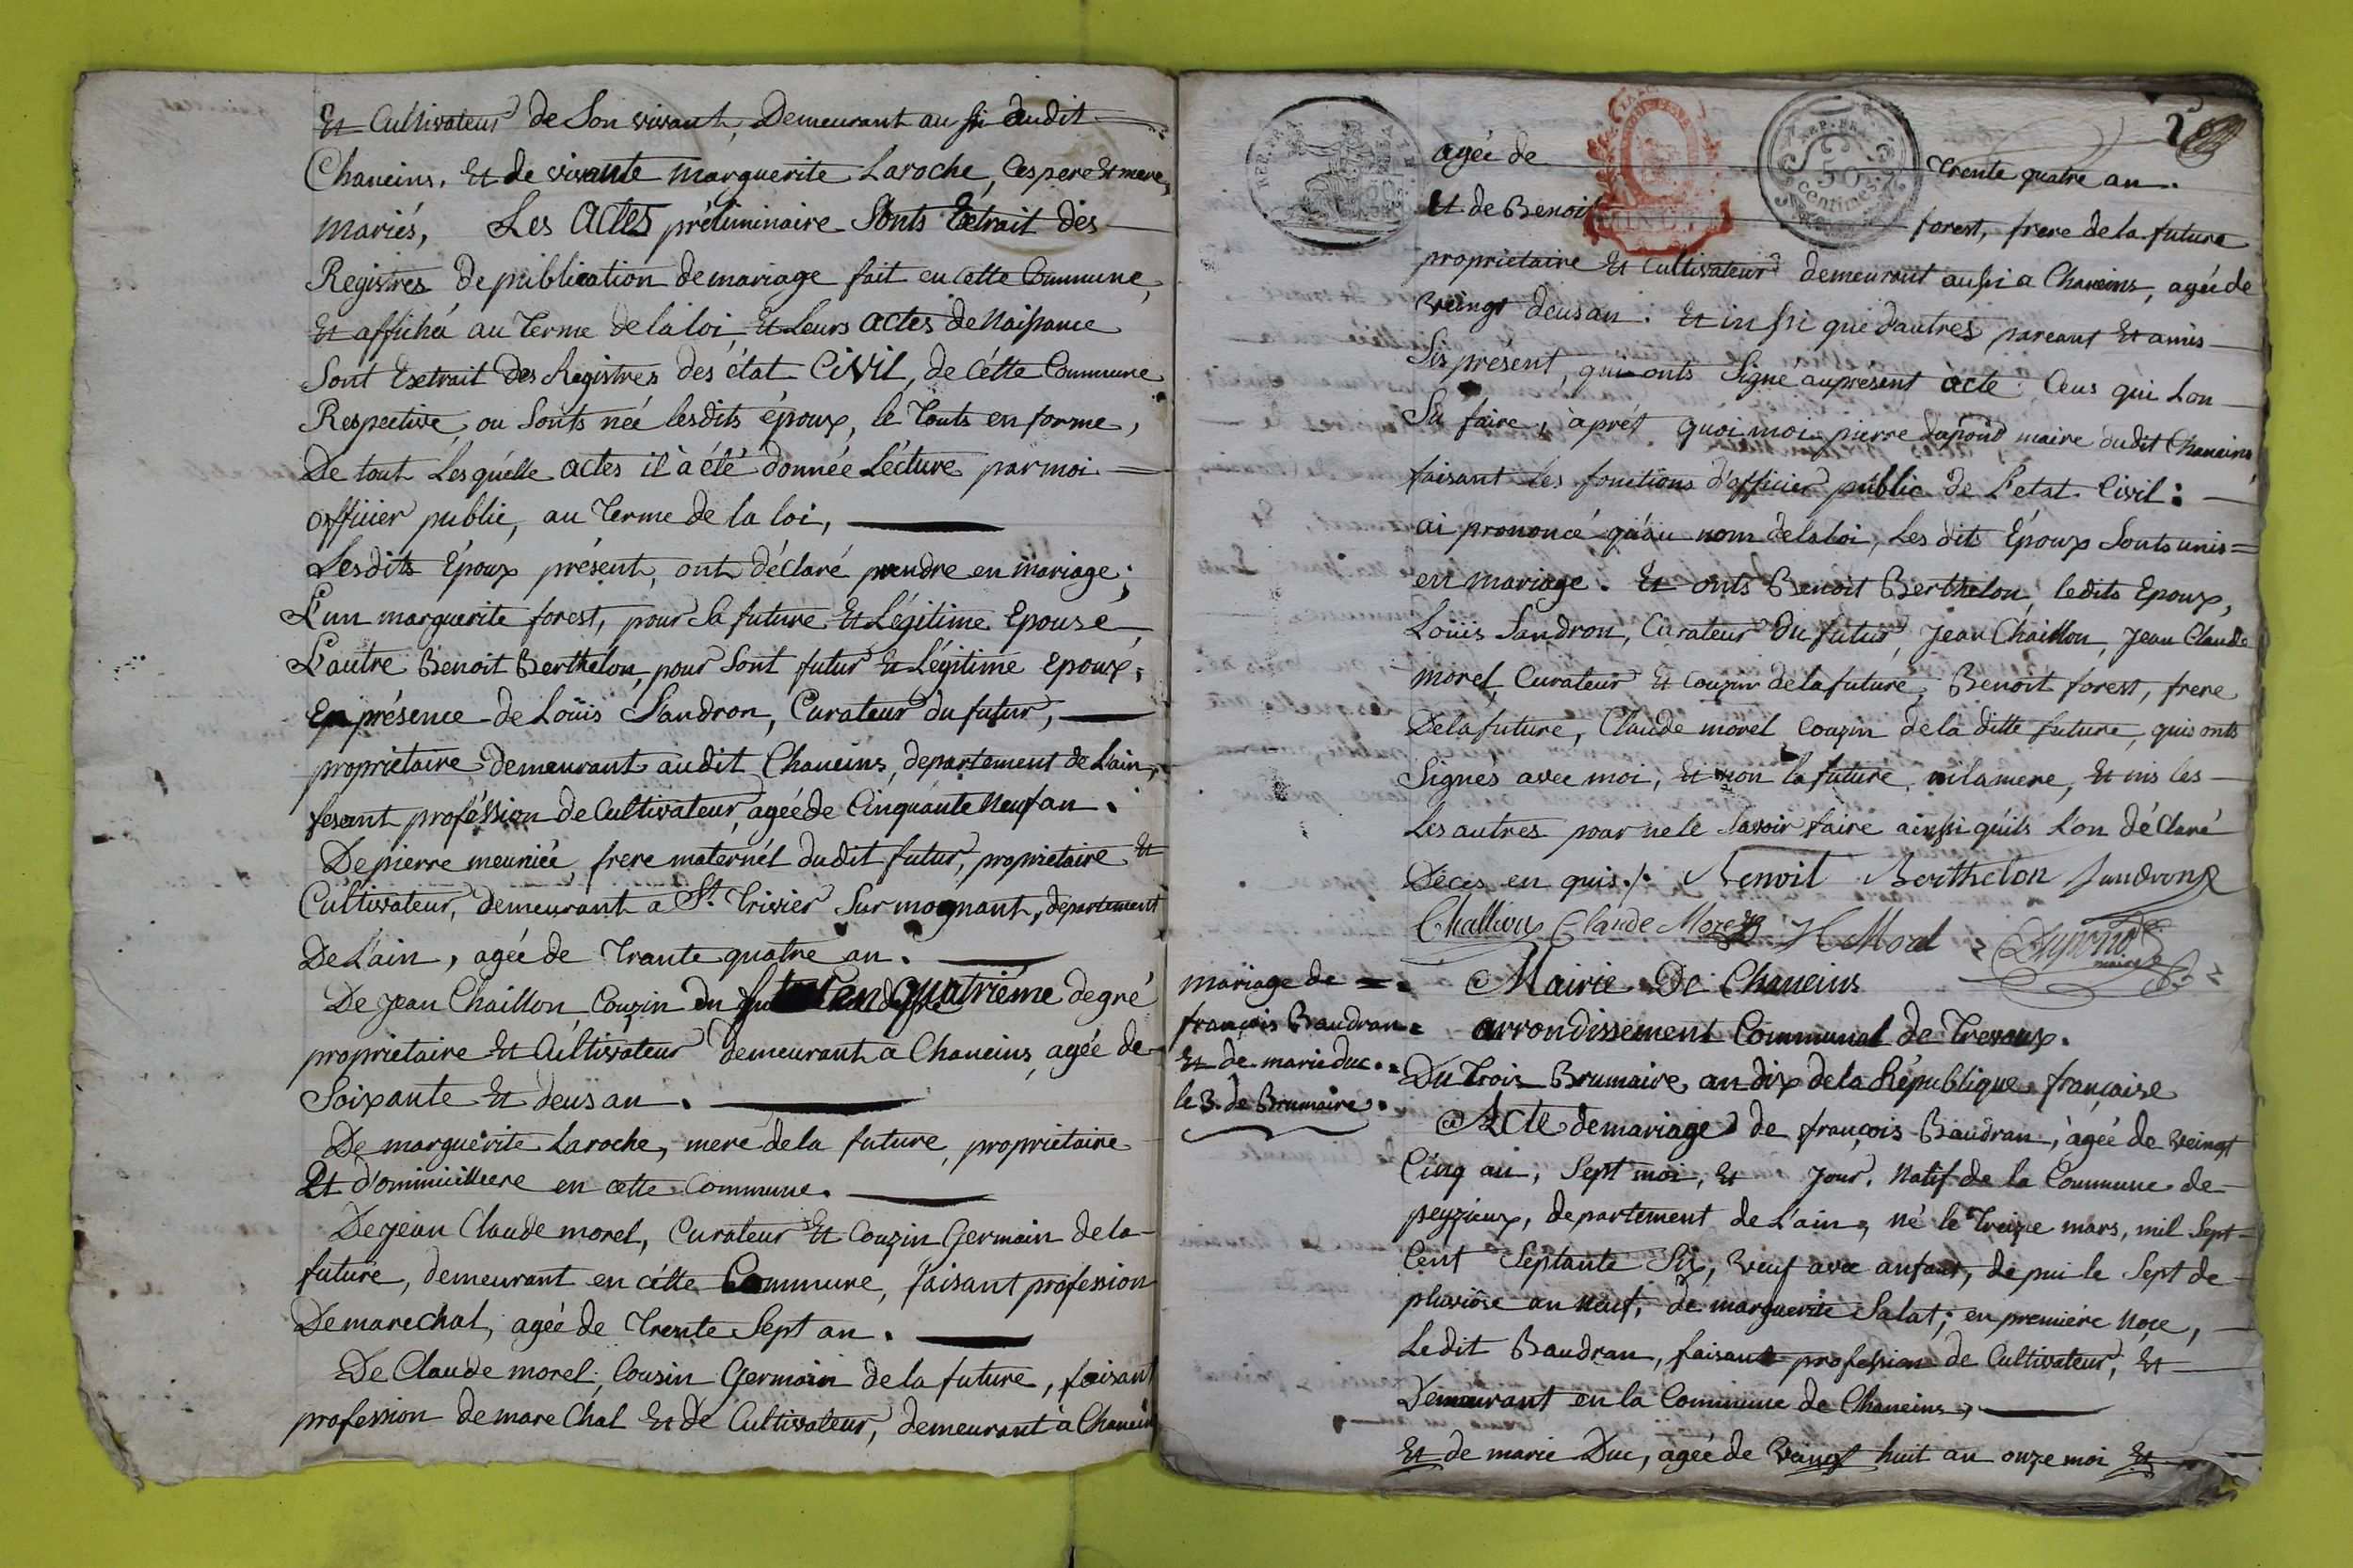 Et Cultivateur de Son vivant, Demeurant au ssi audit
Chaneins. Et de vivante marguerite Laroche, Ces pere Et mere,
mariés, Les Actes préliminaire Sonts Extrait des
Registres de publication de mariage fait en cette Commune,
Et affiché au Terme de la loi, Et Leurs actes de Naissance
Sont Extrait des Registres des état Civil, de Cétte Commune
Respective, ou Sonts née lesdits époux, le Touts en forme,
De tout Lesquélle actes il à été donnée Lécture par moi
officier public, au Terme de la loi,
Lesdits Époux présent, ont déclaré prendre en mariage;
L'un marguerite forest, pour Sa future Et Légitime Epouse
L'autre Benoit Berthelon, pour Sont futur Et Légitime Epoux,
En présence de Loüis Sandron, Curateur du futur,
propriétaire demeurant audit Chaneins, departement de L'ain,
fesant proféssion de Cultivateur, agée de Cinquante Neuf an.
De pierre meuniée, frere maternél dudit futur, proprietaire Et
Cultivateur, demeurant a St. Trivier Sur mognant, departement
De L'ain, agée de Trante quatre an.
De Jean Chaillon, Couzin du futur en quatriéme degré
propriétaire Et Cultivateur demeurant a Chaneins, agée de
Soixante Et deus an.
De marguérite Laroche, mere de la future, propriétaire
Et d'omiciliere en cette Commune.
De jean Claude morel, Curateur Et Couzin Germain de la
future, demeurant en cétte Commune, faisant profession
De marechal, agée de Trente Sept an.
De Claude morel, Cousin Germain de la future, faisant
profession de mare Chal Et de Cultivateur, demeurant à Chanein
2
REP. FRA
REP. FRA
50
centimes
agée de Trente quatre an.
Et de Benoit forest, frere de la future
propriétaire Et Cultivateur demeurant aussi a Chaneins, agée de
Veingt deus an. Et in ssi que d'autres pareant Et amis
Sis présent, qui onts Signé au présent acte. Ceus qui L'on
Su faire, àprét quoi moi pierre Dupond maire dudit Chaneins
faisant les fonctions d'officier public de L'etat Civil:
ai prononcé qu'au nom de la loi, Les dits Époux Sonts unis
en mariage. Et onts Benoit Berthelon, ledits Epoux,
Loüis Sandron, Curateur Du futur, Jean Chaillon, Jean Claude
morel, Curateur Et Couzin de la future, Benoit forest, frere
De la future, Claude morel Couzin de la ditte future, qui onts
Signés avec moi, Et non la future, ni la mere, Et nis les
Les autres par ne le Savoir faire ainssi qu'ils L'on déClaré
De Ces en quis./. Benoit Berthelon Sandron
Chaillon Claude Morel Morel Dupond
maire
mariage de
françois Baudran
Et de marie duc.
le 3. de Brumaire.
Mairie De Chaneins
arrondissement Communal de Trevoux.
Du Trois Brumaire an dix de la République française
Acte de mariage de françois Baudran, àgée de Veingt
Cinq an, Sept moi, Et Jour. Natif de la Commune de
peyzieux, departement de L'ain, né le Treize mars, mil Sept
Cent Septante Six, Veuf avec anfant, depui le Sept de
pluviôse an Neuf, de marguerite Salat; en premiére Noce,
Ledit Baudran, faisant profession de Cultivateur, Et
Demeurant en la Commune de Chaneins,
Et de marie Duc, agée de Veingt huit an onze moi Et